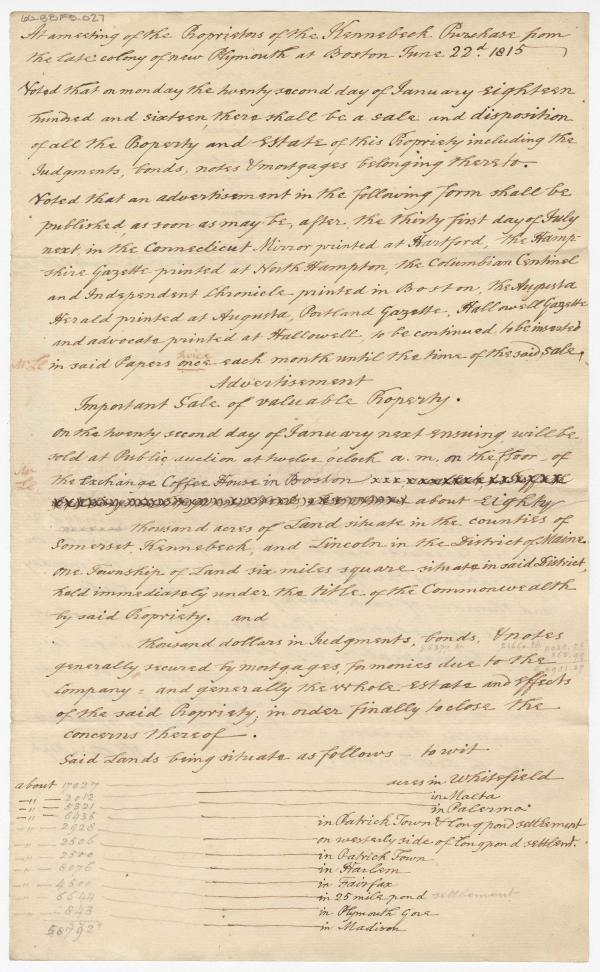 62-88F8-027
At a meeting of the Proprietors of the Kennebeck Purchase from
the late colony of new Plymouth at Boston June 22d. 1815
Voted that on monday the twenty second day of January eighteen
hundred and sixteen, there shall be a sale and disposition
of all the Property and Estate of this Propriety including the
Judgments, bonds, notes & mortgages belonging thereto.
Voted that an advertisement in the following form shall be
published, as soon as may be, after, the thirty first day of July
next, in the Connecticut Mirror printed at Hartford, the Hamp-
shire Gazette printed at North Hampton, the Columbian Centinel
and Independent Chronicle printed in Boston, the Augusta
Herald printed at Augusta, Portland Gazette, Hallowell Gazette
and advocate printed at Hallowell, to be continued to be inserted
twice
in said Papers once each month until the time of the said sale,
Advertisement
Important Sale of valuable Property.
On the twenty second day of January next ensuing will be
sold at Public auction at twelve o'clock a.m. on the floor of
the Exchange Coffee House in Boston
about Eighty
thousand acres of Land situate in the counties of
Somerset, Kennebeck, and Lincoln in the District of Maine.
One Township of Land six miles square situate in said District,
held immediately under the title of the Commonwealth
by said Propriety. and
thousand dollars in Judgments, bonds, & notes
generally secured by mortgages, for monies due to the
Company = and generally the whole Estate and Effects
of the said Propriety, in order finally to close the
concerns thereof.
Said Lands being situate as follows to wit
about 17027 acres in Whitefield
-"- 2012 in Malta
-"- 5321 in Palermo
-"- 6435 in Patrick Town & long pond settlement
-"- 2928 on westerly side of long pond settlemt.
-"- 2506 in Patrick Town
-"- 2500 in Harlem
-"- 8076 in Fairfax
-"- 4500 in 25 mile pond settlement
-"- 6644 in Plymouth Gore
-"- 843 in Madison
58792